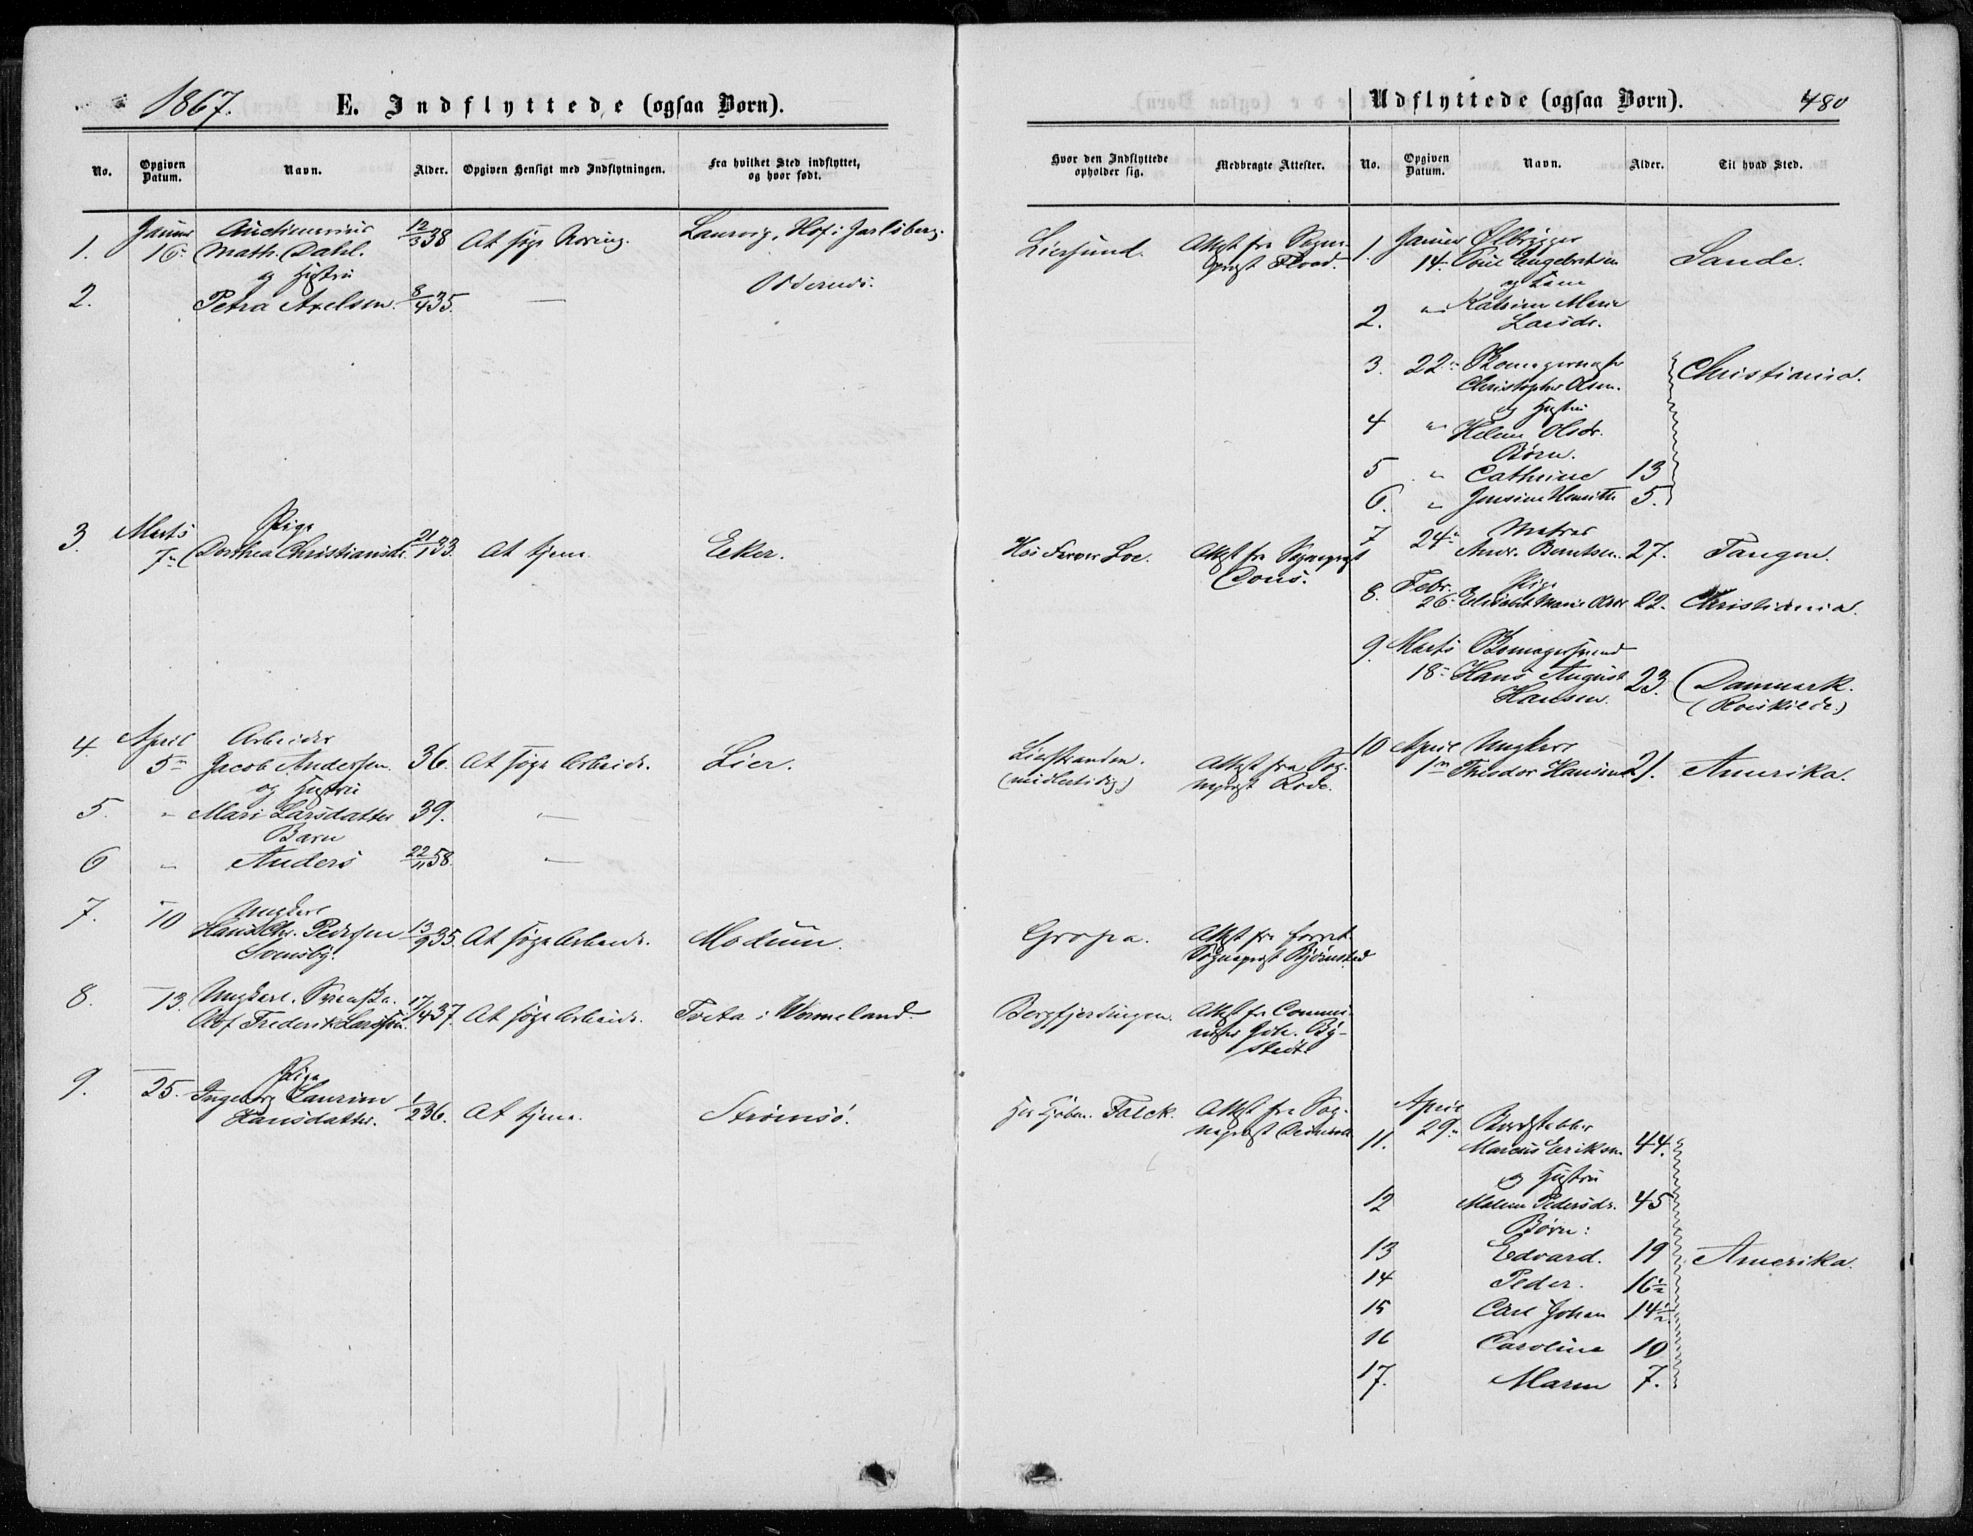 1867.
E. Indflyttede (ogsaa Børn).
No.
Opgiven Datum.
Navn.
Alder.
Opgiven Hensigt med Indflytningen.
Fra hvilket Sted indflyttet, og hvor født.
1. 16 Math. Dahl. 12/3 38 At søge Næring. Laurvig, Hof i Jarlsberg.
og Hustru
2. Petra Axelsen. 8/4 35. —
Marts Pige
3. 7de Dorthea Christiansdr. 21/1 33. At tjene. Eeker.
4. April Arbeider
5te Jacob Andersen. 36. At søge Arbeide. Lier.
og Hustru
5. " Mari Larsdatter 39. —
Barn
6 " Anders 22/11 58. —
7. — Ungkarl
10 Hans Chr. Pedersen 13/9 35. At søge Arbeide. Modum.
8. — 13. Ungkarl. Svenske.
Olof Frederik Larsson. 17/4 37. At søge Arbeide. Tveta i Wermeland.
9. — Pige
25. Ingeborg Laurine
Hansdatter. 1/2 36. At tjene. Strømsö.
Udflyttede (ogsaa Børn).
480
Hvor den Indflyttede opholder sig.
Medbragte Attester.
No.
Opgiven Datum.
Navn.
Alder.
Til hvad Sted.
Liersund. Attest fra Sogne-
præst Flood.
Hos Farver Loe. Attest fra Sognepræst
Dons.
Lierstranden.
(midlertidig) Attest fra Sog-
nepræst Rode.
Gropa. Attest fra forret.
Sognepræst Bjørnstad
Bergfjerdingen. Attest fra Commi-
nister Joh. By-
stedt.
Hos Kjøbm. Falck. Attest fra Sog-
nepræst
1. Januar Ølbrygger
14. Poul Engebretsen Sande.
og Kone
2. " Katrine Marie
Larsdr.
3. 22de Skomagermester
Christopher Olsen. Christiania.
og Hustru
4 " Helene Olsdr.
Børn.
5 " Cathrine 13
6. " Jensine Henritte 5.
7 24de Matros
Andr. Berntsen. 27. Tangen.
8. Febr. Pige
26. Elisabet Marie Olsdr. 22. Christiania.
9. Marts Skomagersvend
18de Hans August
Hansen. 23. Danmark.
(Roeskilde.)
10 April Ungkarl
1ste Theodor Hansen 21. Amerika.
April
29de Bordstabler
11. Marcus Eriksen. 44.
og Hustru
12 Malene Pedersdr. 45
Børn:
13 Edvard. 19 Amerika.
14 Peder. 16½
15 Carl Johan 14½
16 Caroline 10
17. Maren 7.